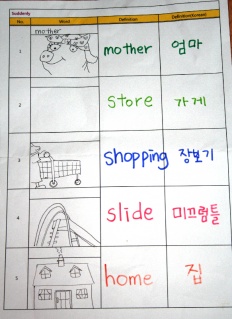 Suddenly
No. Word Definition Definition(Korean)
1 mother mother 엄마
2 store 가게
3 shopping 장보기
4 slide 미끄럼틀
5 home 집